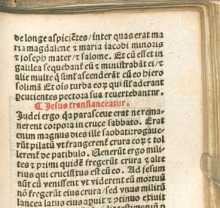 de longe aspiciẽtes / inter quas erat ma
ria magdalene ⁊ maria iacobi minoris
⁊ ioseph mater ⁊ salome. Et cũ esset in
galilea sequebãť eũ ⁊ ministrabãt ei ⁊
alie multe q̃ simł ascenderãt cũ eo hiero
solimã Et oĩs turba eoꝝ qui
percutientes pectora sua reuertebantur.
¶ Jesus translanceatur.
Judei ergo qꝫ parasceue erat ne rema
nerent corpora in cruce sabbato. Erat
enim magnus dies ille sabbati: rogaue-
rũt pilatũ vt frangerent̃ crura eoꝝ ⁊ tol
lerent̃ de patibulo. Uenerũt ergo mili
tes ⁊ primi quidẽ fregerũt crura ⁊ alte
rius qui crucifixus est cũ eo. Ad iesum
aũt cũ venissent vt viderent eũ mortuũ
nõ fregerũt eius crura sed vnus militũ
lancea latus eius aperuit ⁊ cõtinuo exiuit